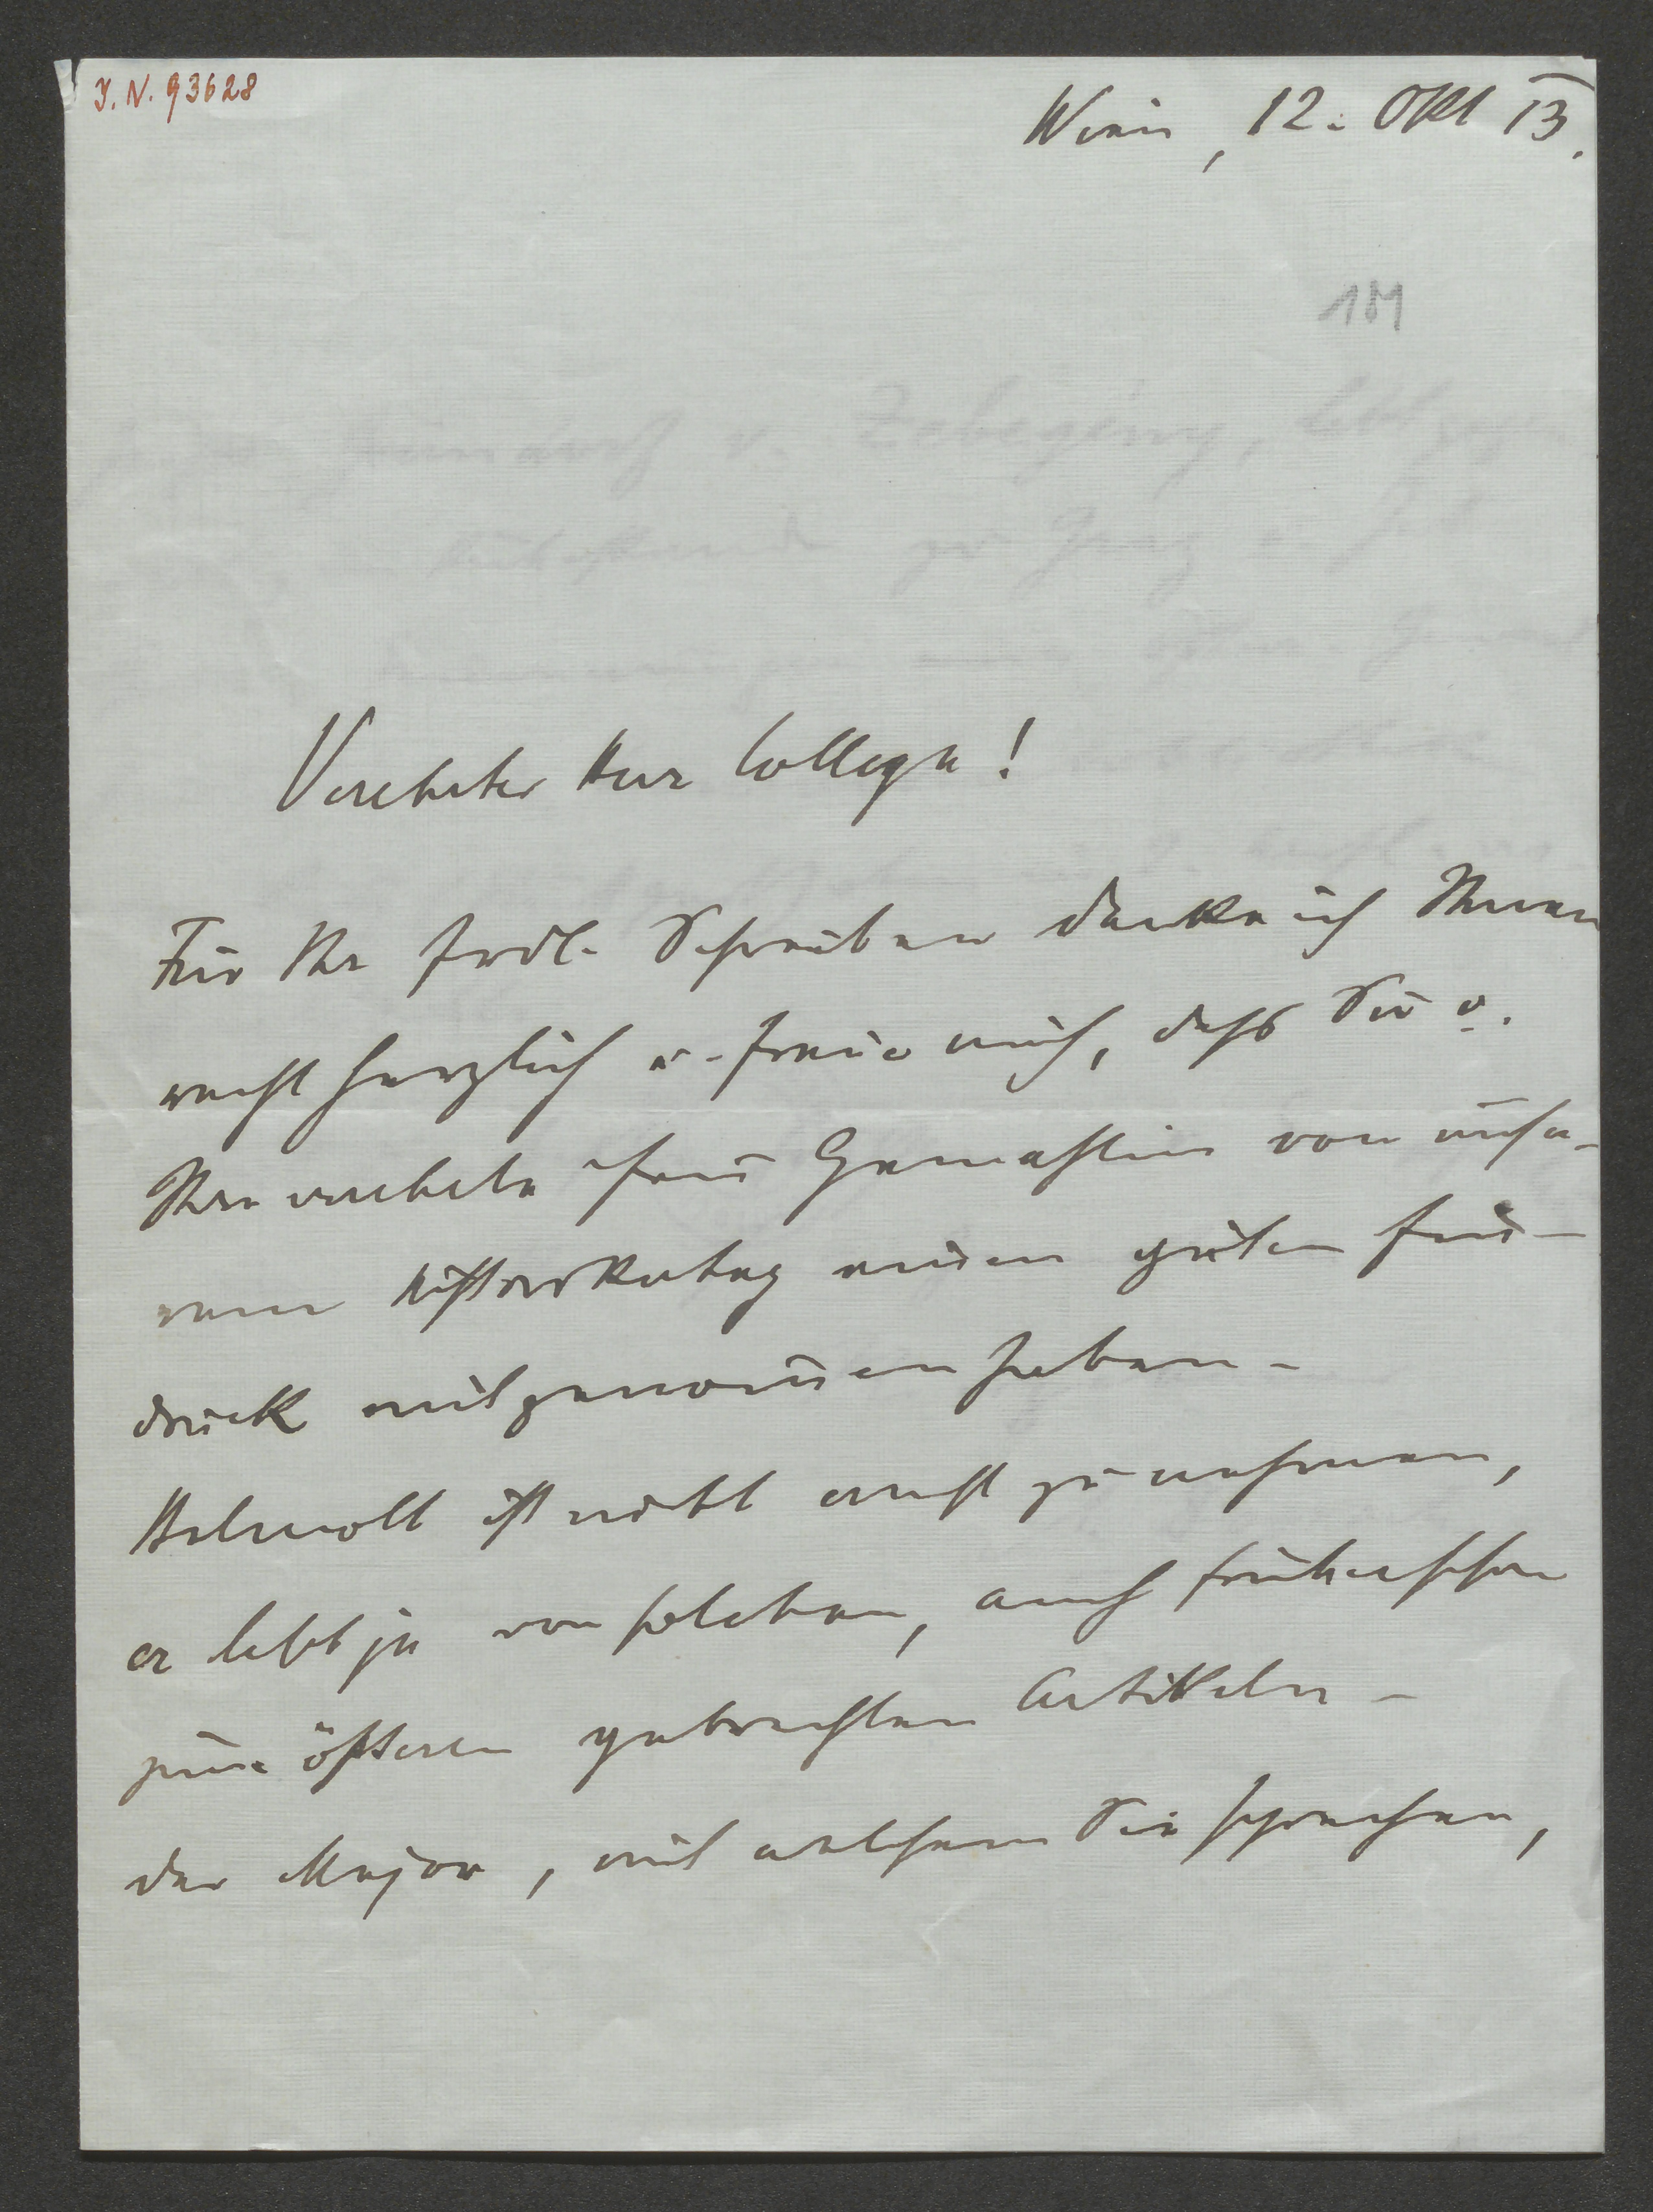 J. N. 93628
Wien, 12. Okt 13.
184
Verehrter Herr Collega!
Für Ihr frdl. Schreiben danke ich Ihnen
recht herzlich u. freue mich, dass Sie u.
Ihre verehrte Frau Gemahlin von unse-
rem Historikertag einen guten Ein-
druck mitgenommen haben.
Helmolt ist nicht ernst zu nehmen,
er lebt ja von solchen, auch früher schon
zum öfteren gebrachten Artikeln.
der Major, mit welchem Sie sprachen,